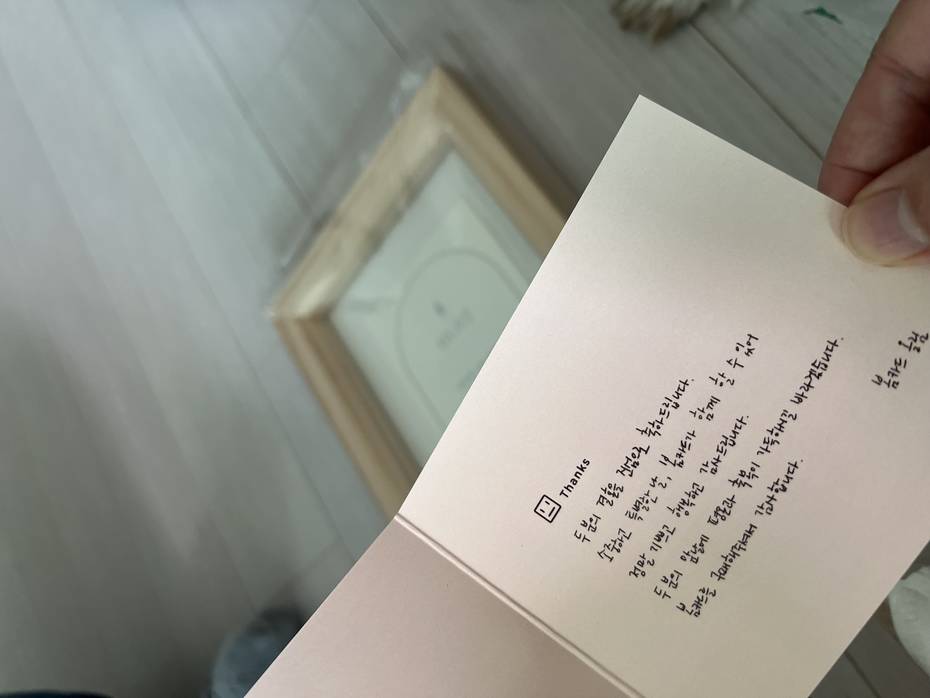 Thanks
두 분의 결혼을 진심으로 축하드립니다.
소중하고 특별한 날, 봄카드가 함께 할 수 있어
정말 기쁘고 행복하고 감사드립니다.
두 분의 앞날에 평안과 축복이 가득하시길 바라겠습니다.
봄카드를 구매해주셔서 감사합니다.
봄카드 올림